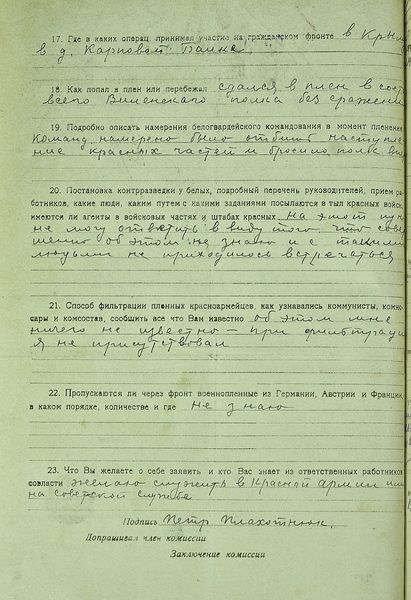 17. Где в каких операц. принимал участие на гражданском фронте в Крым
в д. Карповой Балке
18. Как попал в плен или перебежал сдался в плен в сост
всего Виленского полка без сражени
19. Подробно описать намерения белогвардейского командования в момент пленения
Команд. намерено было отбить наступле
ние красных частей и бросило полк
20. Постановка контрразведки у белых, подробный перечень руководителей, прием ра-
ботников, какие люди, каким путем с какими заданиями посылаются в тыл красных войск,
имеются ли агенты в войсковых частях и штабах красных на этот пун
не могу ответить в виду того, что совер
шенно об этом не знаю и с такими
людьми не приходилось встречаться
21. Способ фильтрации пленных красноармейцев, как узнавались коммунисты, комис-
сары и комсостав, сообщить все что Вам известно об этом мне
ничего не известно – при фильтраци
я не присутствовал
22. Пропускаются ли через фронт военнопленные из Германии, Австрии и Франции,
в каком порядке, количестве и где не знаю
23. Что Вы желаете о себе заявить и кто Вас знает из ответственных работников
совласти желаю служить в Красной армии или
на советской службе
Подпись Петр Плахотнюк.
Допрашивал член комиссии
Заключение комиссии